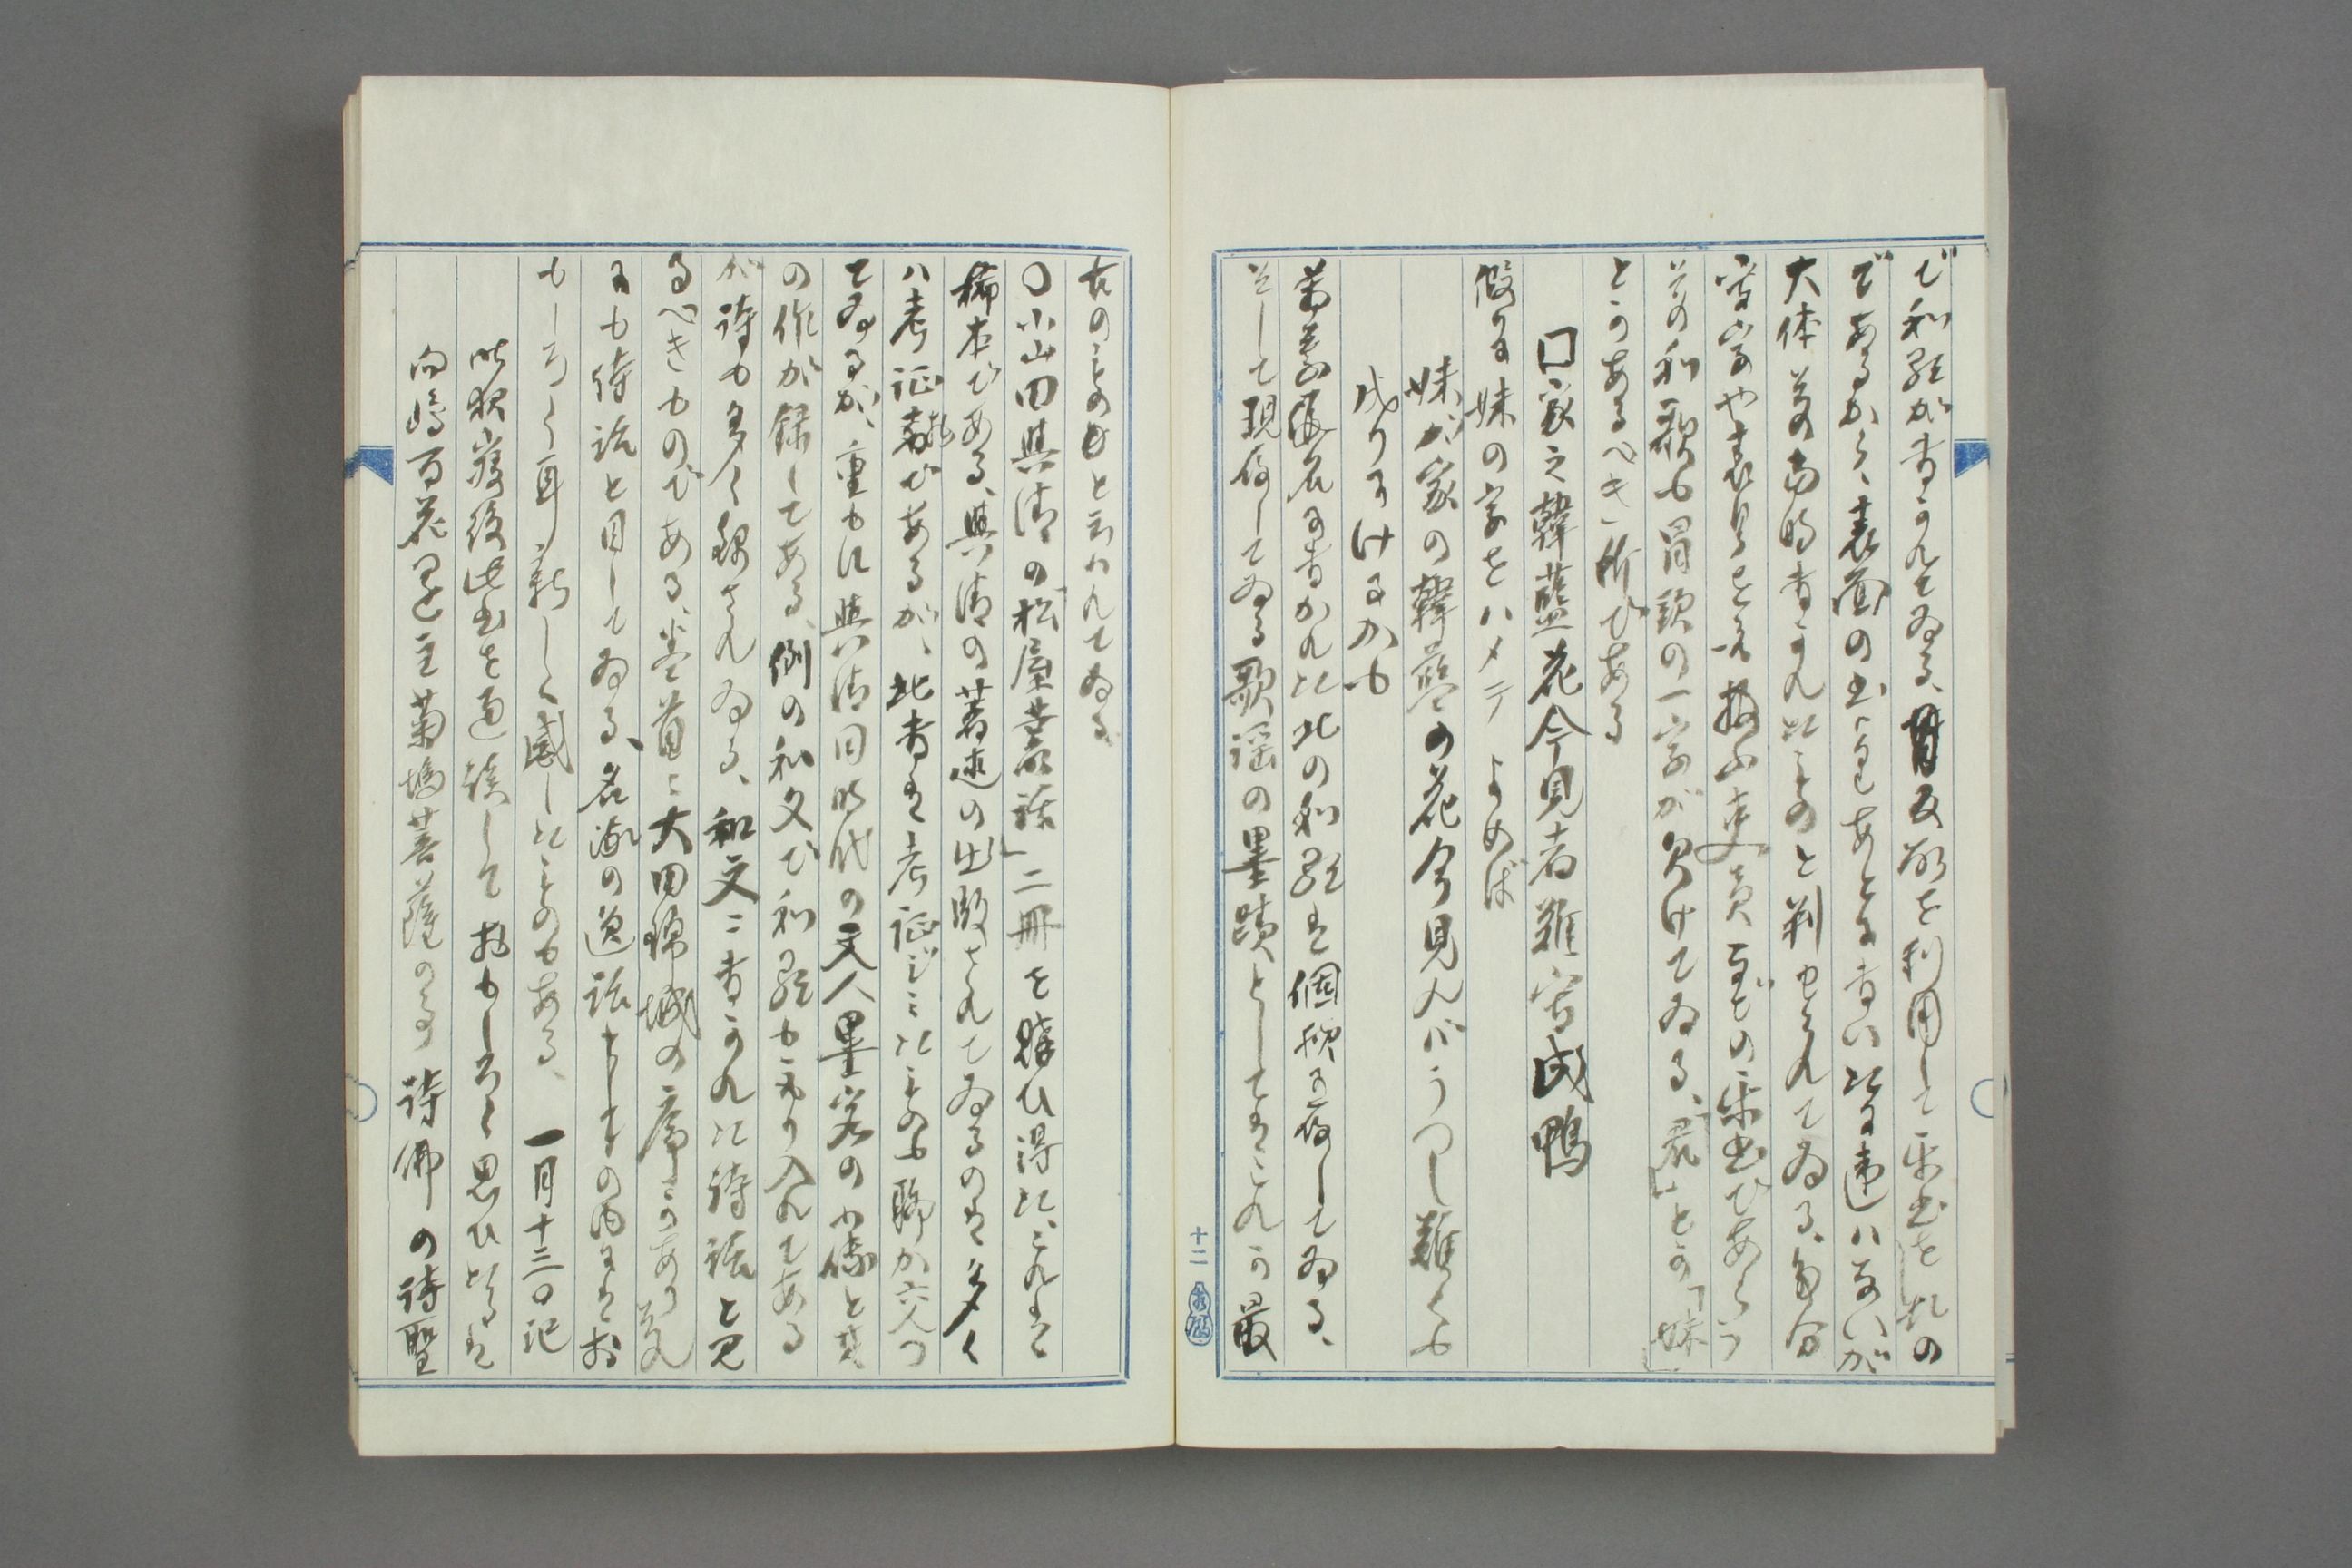 で和歌が書かれてゐる、反故を利用して楽書をしたの
であるから、表面の書よりもあとに書いたに違ハないが
大体其当時書かれたものと判せられてゐる、多分
写字や表具を扱ふ吏員などの楽書であらう
その和歌も冒頭の一字が欠けてゐる、「君」とか「妹」
とかあるべき所である
□家之韓藍花今見者難写成鴨
假に妹の字をハメテよめば
妹が家の韓藍の花今見れバうつし難くも
成りにけるかも
萬葉仮名に書かれた此の和歌は個性を存してゐる、
そして現存してゐる歌謡の墨蹟としてはこれが最
古のものと云はれてゐる
○小山田與清の「松屋叢話」二冊を購ひ得た、これは
稀本である、與清の著述の出版されてゐるのは多く
ハ考証ものであるが、此書は考証じみたものも聊か六つ
てゐるが、重もに與清同時代の文人墨客の小傳と其
の作が録してある、例の和文で和歌も取り入れてある
が詩も多く録されゐる、和文ニ書かれた詩話と見
るべきものである、巻首に大田錦城の序があり其
にも詩話と目してゐる、名流の逸話などの内には
もしろく耳新しく感じたものもある、 一月十三日記
此夜 後此書を通読しておもしろく思ひたるは
向嶋百花園主菊塢菩薩のこと 詩佛の詩聖
十二